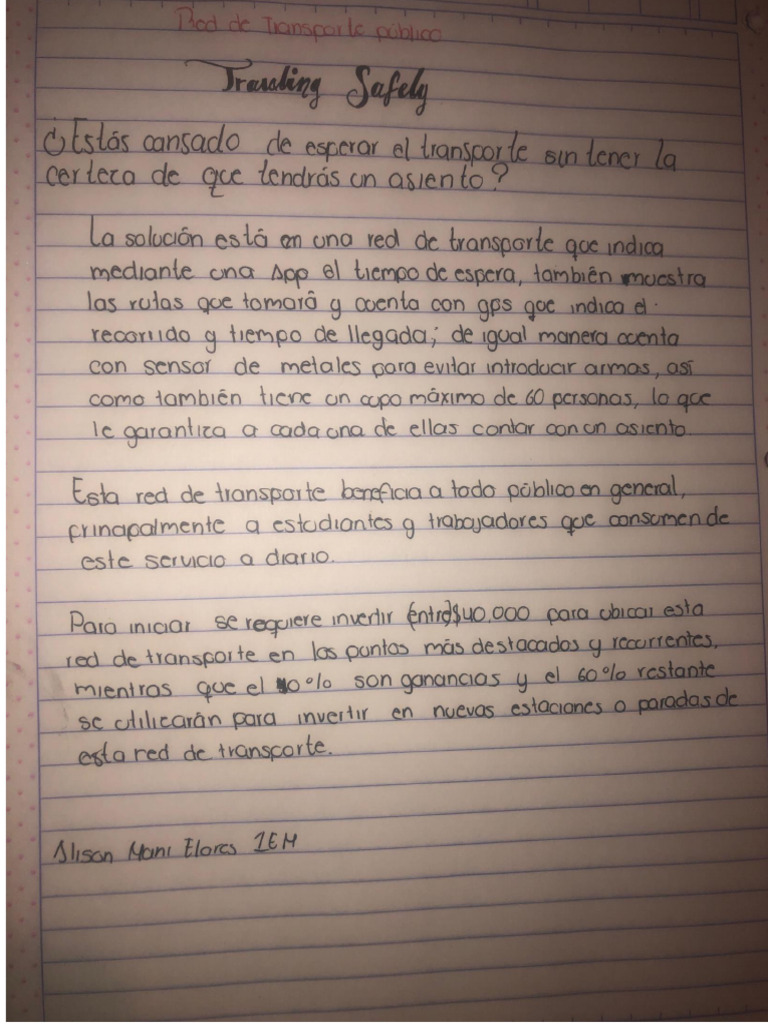 Red de Transporte público
Traveling Safely
¿Estás cansado de esperar el transporte sin tener la
certeza de que tendrás un asiento?
La solución está en una red de transporte que indica
mediante una App el tiempo de espera, también muestra
las rutas que tomará y cuenta con gps que indica el
recorrido y tiempo de llegada; de igual manera cuenta
con sensor de metales para evitar introducir armas, así
como también tiene un cupo máximo de 60 personas, lo que
le garantiza a cada una de ellas contar con un asiento.
Esta red de transporte beneficia a todo público en general,
principalmente a estudiantes y trabajadores que consumen de
este servicio a diario.
Para iniciar se requiere invertir (entre)$40.000 para ubicar esta
red de transporte en los puntos más destacados y recurrentes,
mientras que el 40% son ganancias y el 60% restante
se utilizarán para invertir en nuevas estaciones o paradas de
esta red de transporte.
Alison Mani Flores 1EM